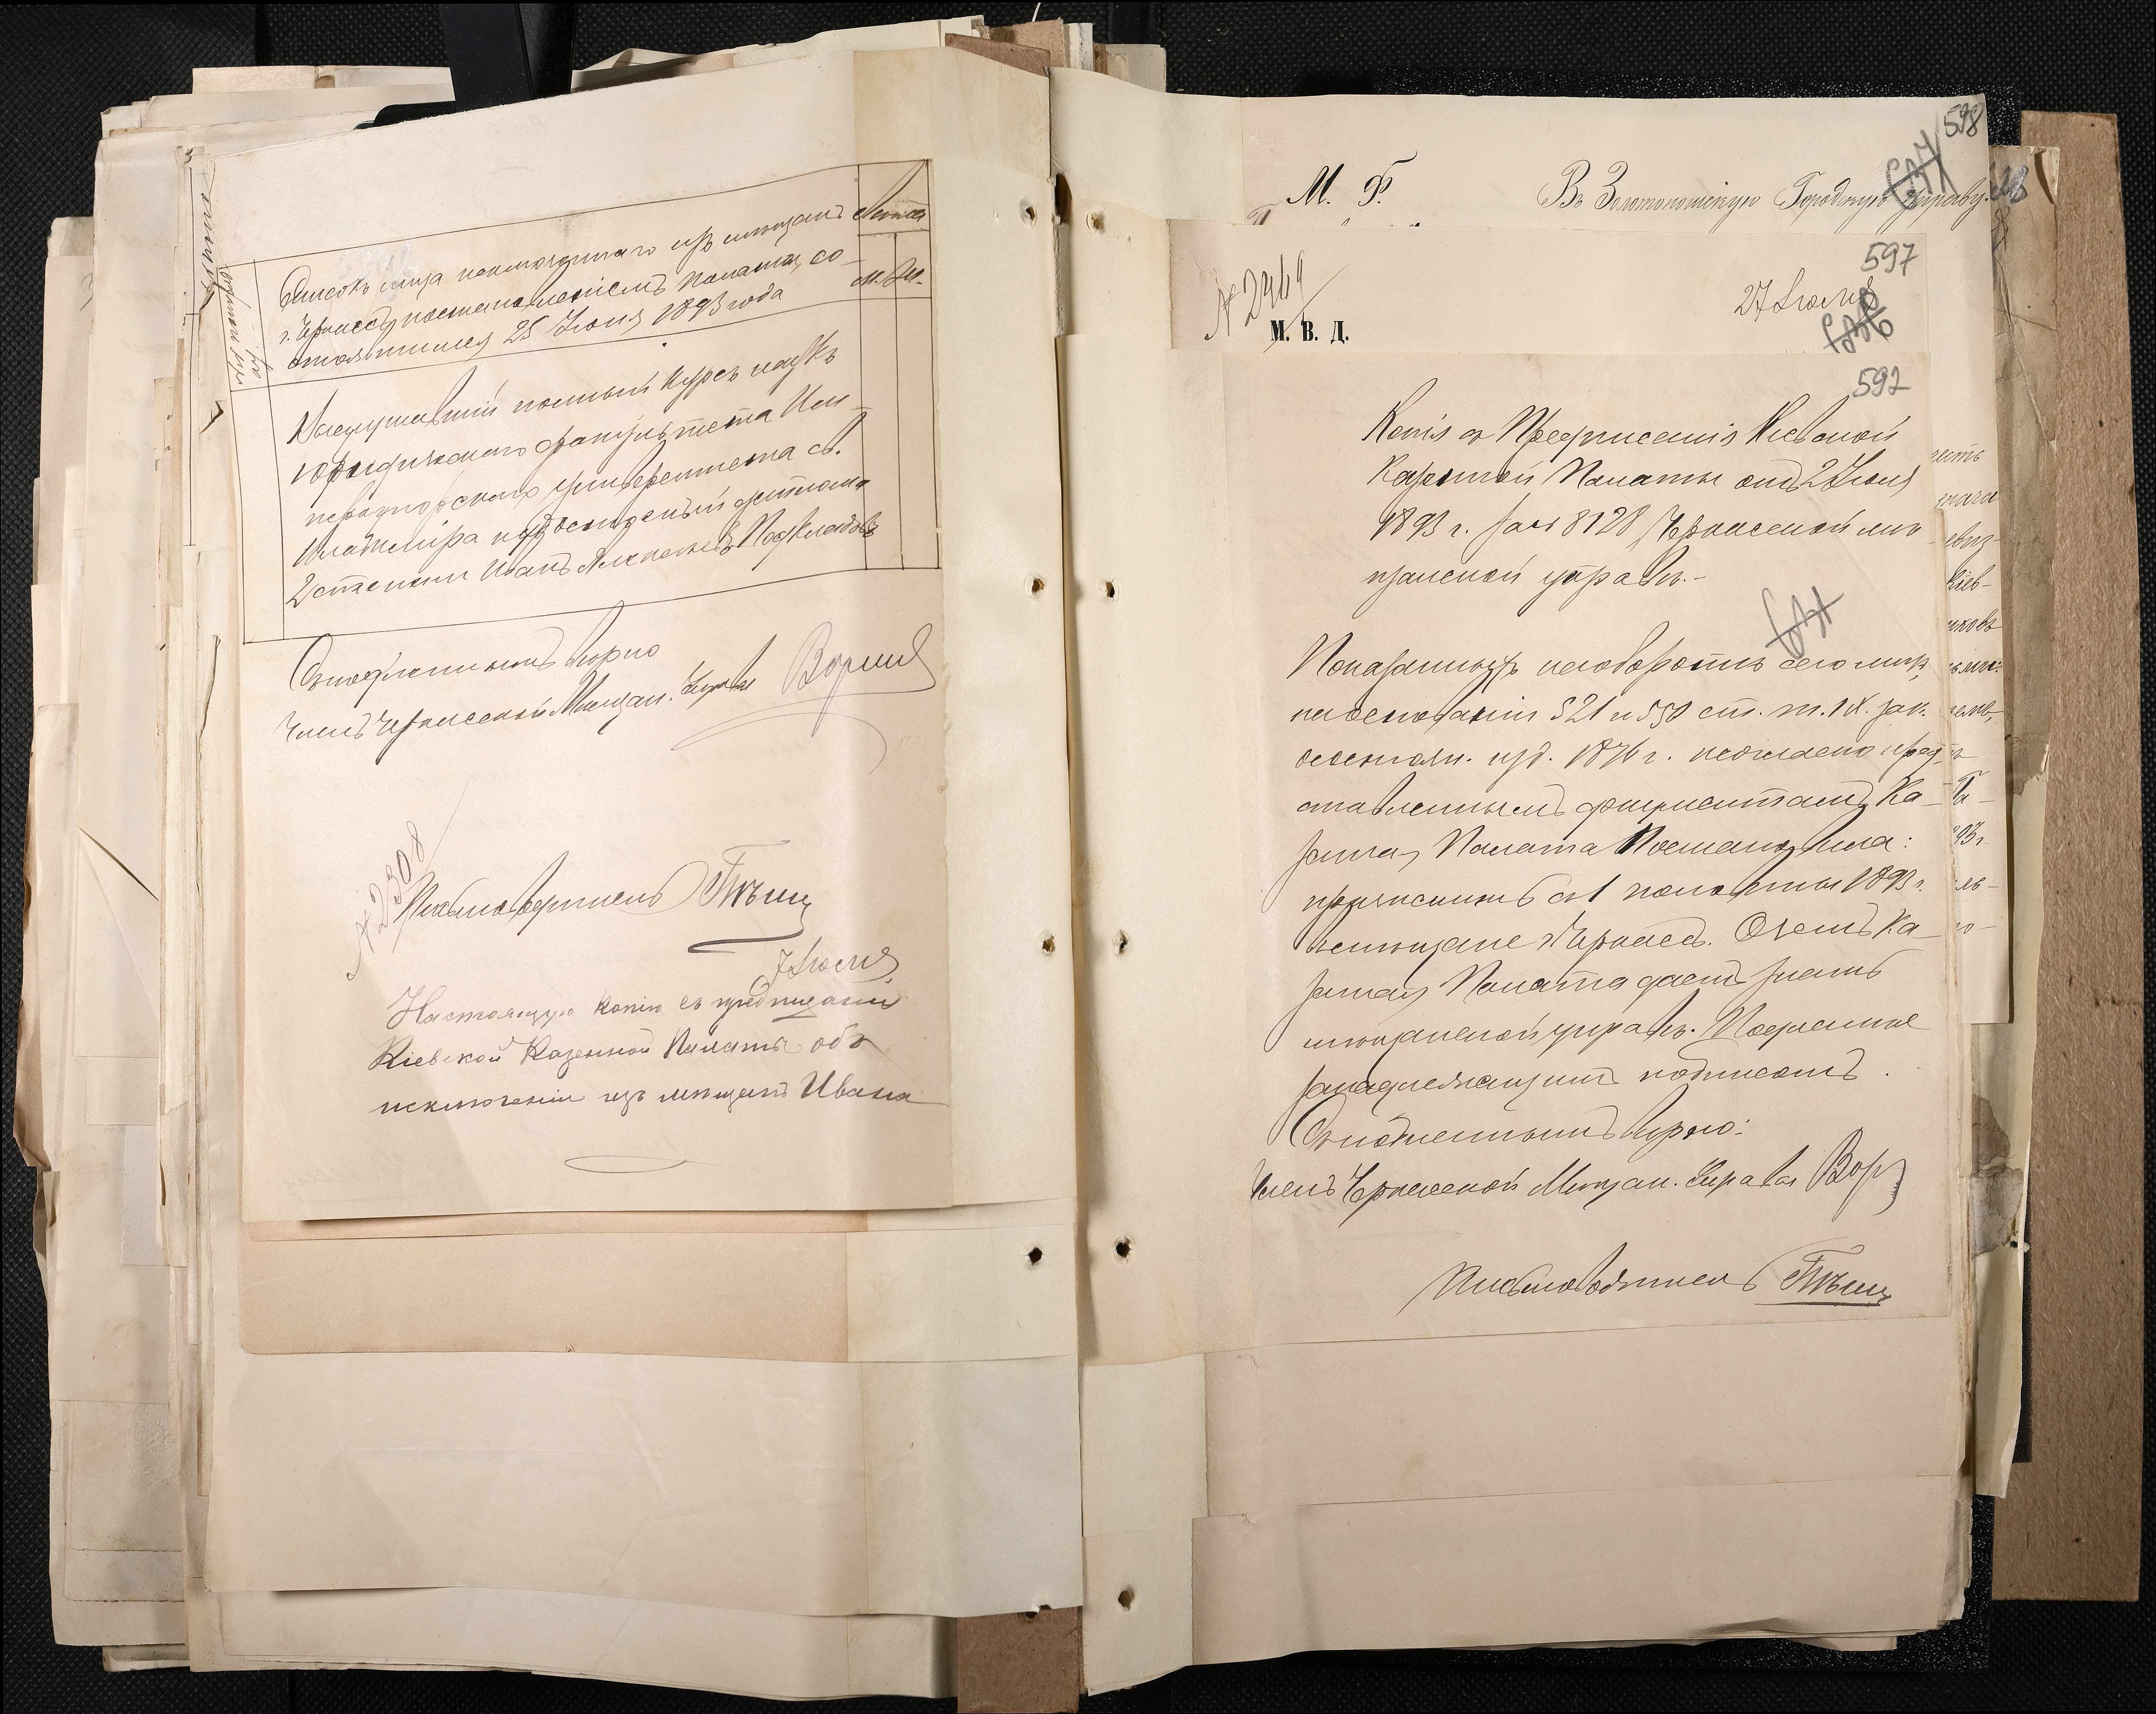 Списокъ лица исключеннаго изъ мѣщанъ
г. Черкассъ постановленіемъ Палаты, со-
стоявшимся 25 Іюня 1893 года
м. ж.
Выслушавшій полный курсъ наукъ
юридическаго факультета Им-
ператорскаго университета св.
Владиміра удостоенный диплома
2 степени Иванъ Алексѣевъ
Съ подлиннымъ вѣрно
Членъ Черкасской Мѣщан. Управы
№ 2308
Письмоводитель
7 Іюля
Настоящую копію съ предписанія
Кіевской Казенной Палаты объ
исключеніи изъ мѣщанъ Ивана
598
М. Ф.
Въ Золотоношскую Городскую Управу.
597
№ 2449
27 Іюля
М. В. Д.
592
Копія съ Предписанія Кіевской
Казенной Палаты отъ 2 Іюля
1893 г. за № 8128 Черкасской мѣ-
щанской управѣ.-
Показанныхъ на оборотѣ сего лицъ,
на основаніи 521 и 550 ст. т. IX. зак.
о состоян. изд. 1876 г. и согласно пред-
ставленнымъ документамъ, Ка-
зенная Палата Постановила:
съ 1 половины 1893 г.
мѣщане г. Черкассъ. О чемъ Ка-
зенная Палата даетъ знать
мѣщанской управѣ. Подлинное
за надлежащимъ подписомъ.
Съ подлиннымъ вѣрно:
Членъ Черкасской Мѣщан. Управы
Письмоводитель